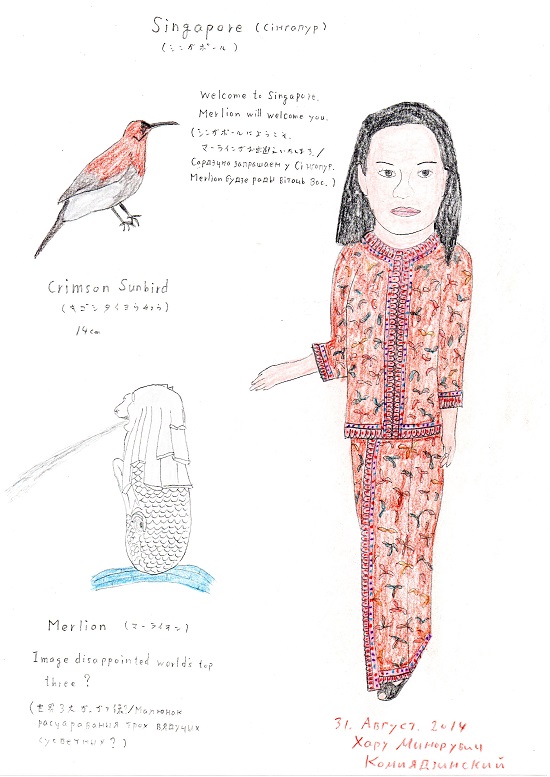 Singapore (Сінгопур)
(シンガポール)
Welcome to Singapore.
Merlion will welcome you.
(シンガポールにようこそ。
マーライオンがお出迎えいたします。/
Сардэчна запрашаем у Сінгопур.
Merlion будзе рады вітаць Вас.)
Crimson Sunbird
(キゴシタイヨウチョウ)
14cm
Merlion (マーライオン)
Image disappointed world's top
three?
(世界3大がっかり像/Малюнак
расчаравання трох вядучых
сусветных?)
31. Август. 2014
Хору Минорувич
Комиядзинский